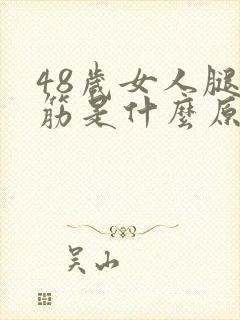 48歲女人腿
筋是什麼原
吴山